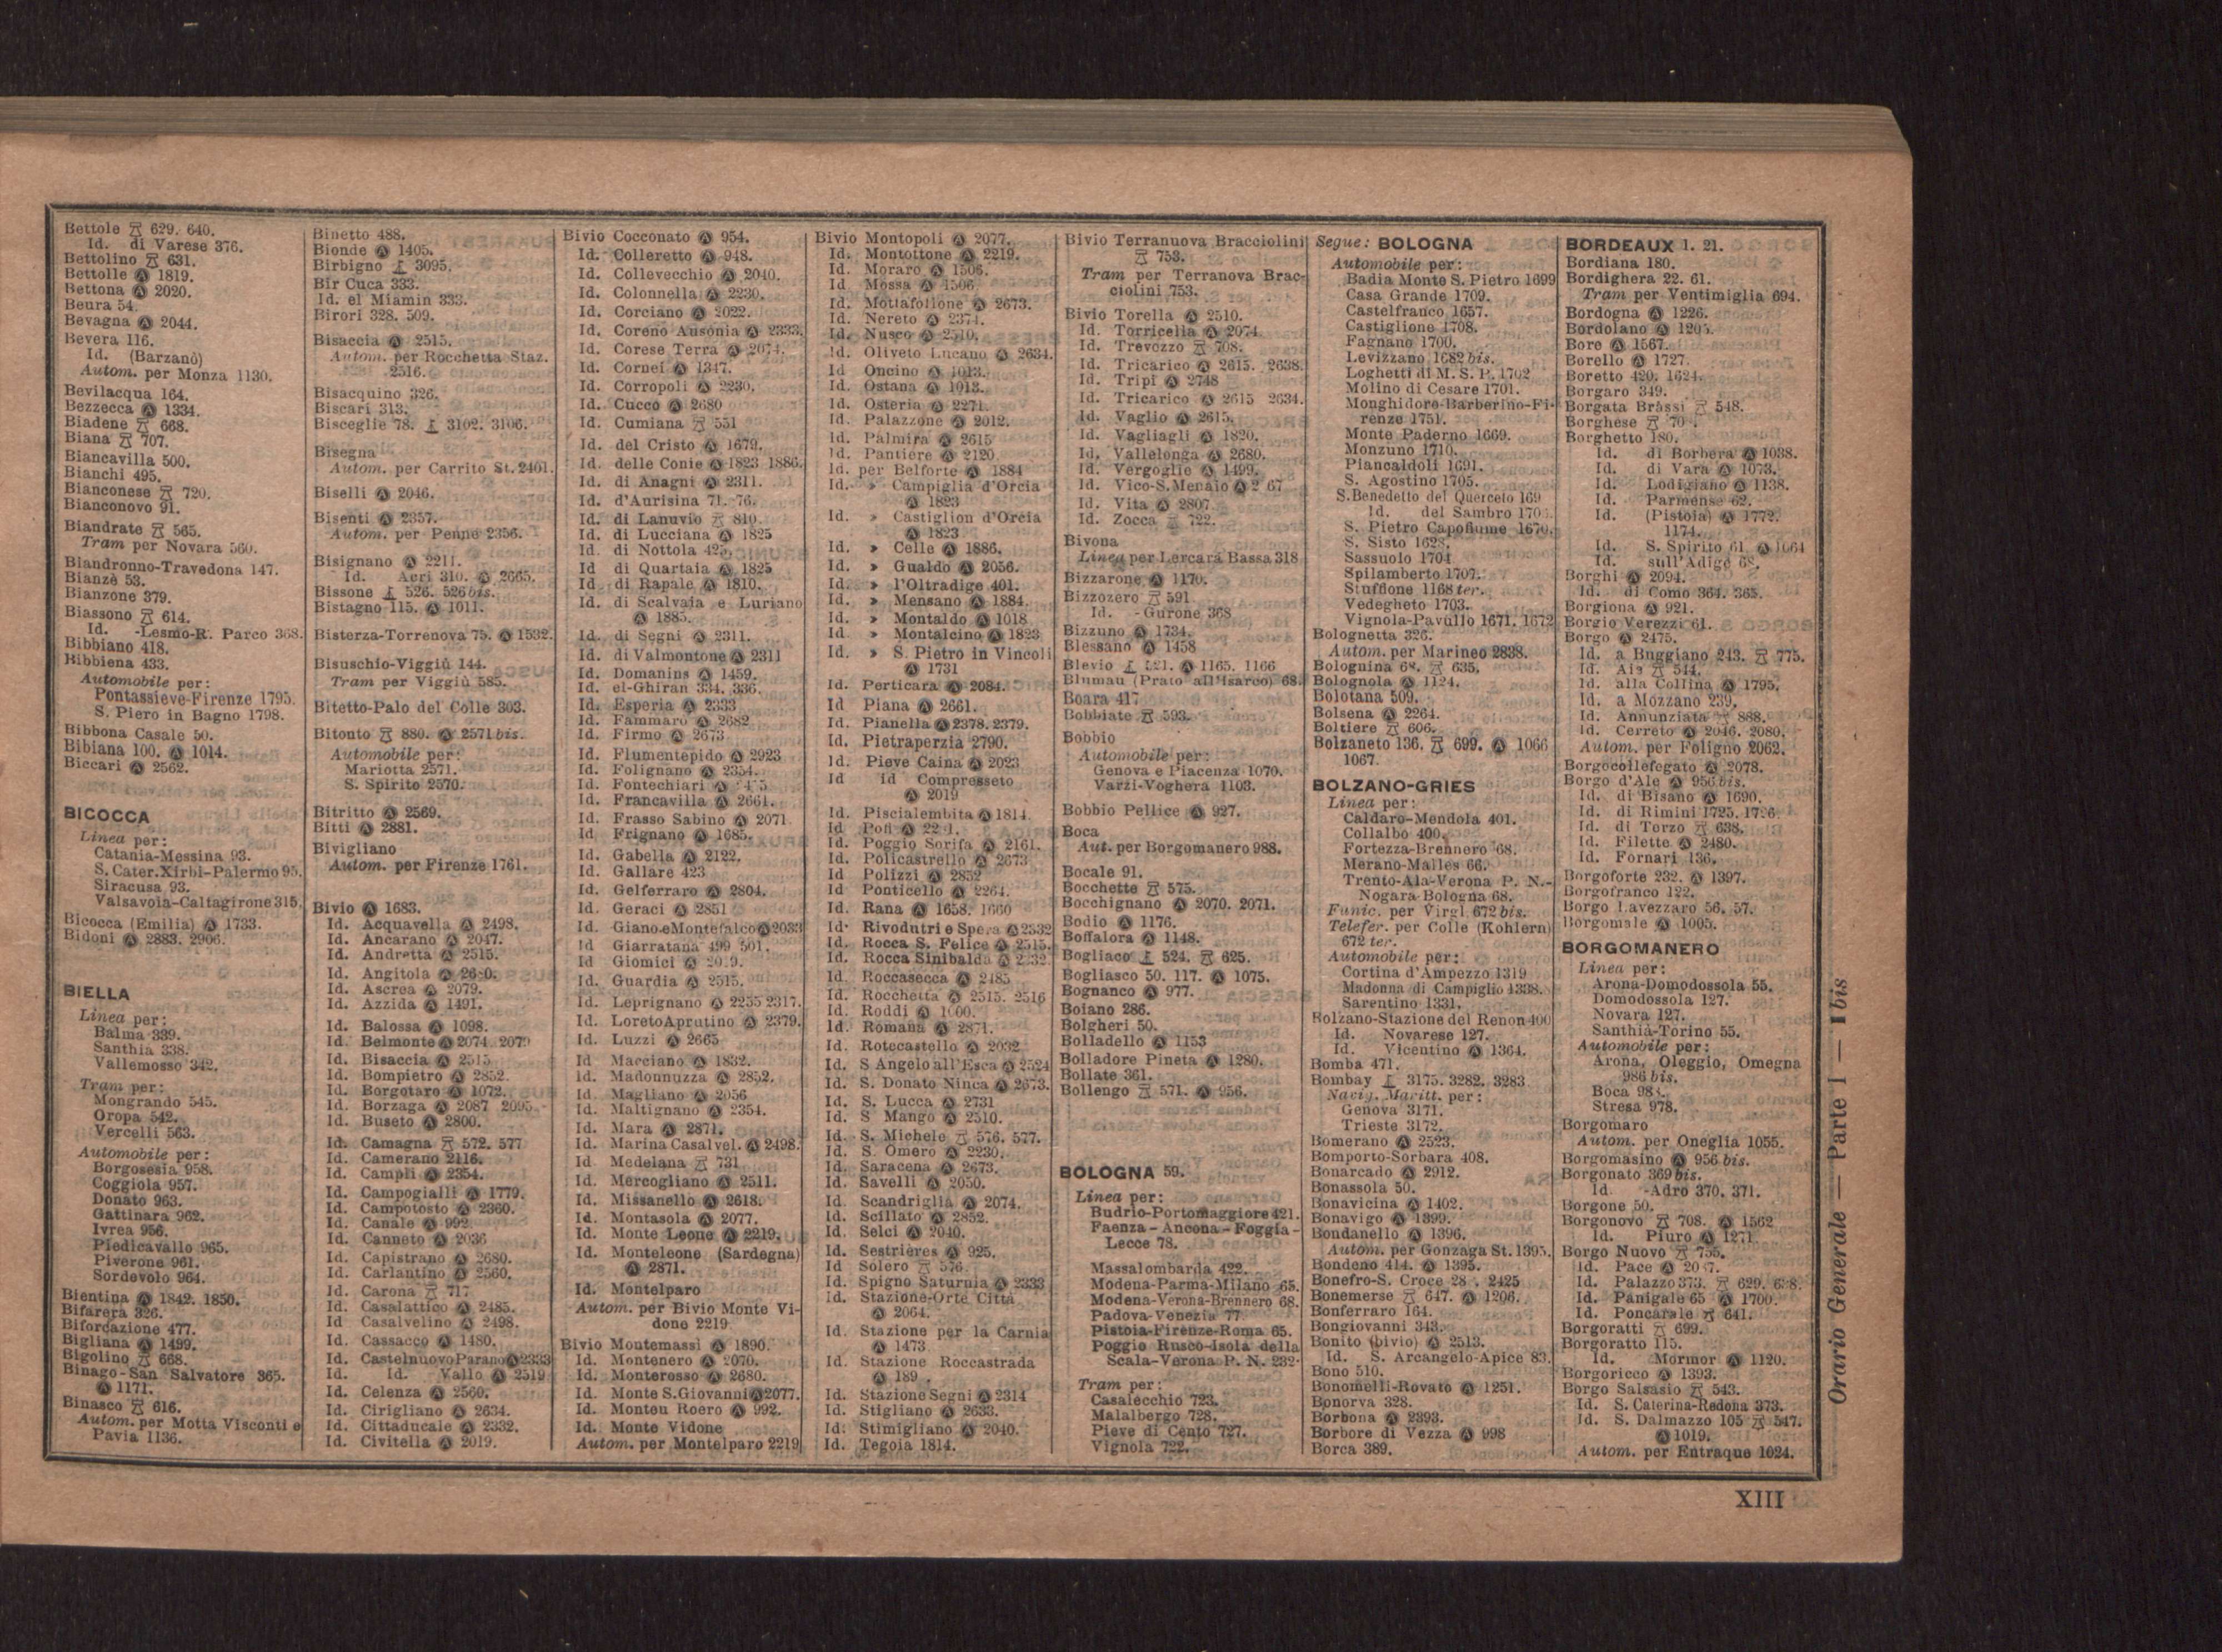 Bettole 629. 640.
Id. di Varese 376.
Bettolino 631.
Bettolle Ⓐ 1819.
Bettona Ⓐ 2020.
Beura 54.
Bevagna Ⓐ 2044.
Bevera 116.
Id. (Barzanò)
Autom. per Monza 1130.
Bevilacqua 164.
Bezzecca Ⓐ 1334.
Biadene 668.
Biana 707.
Biancavilla 500.
Bianchi 495.
Bianconese 720.
Bianconovo 91.
Biandrate 565.
Tram per Novara 560.
Biandronno-Travedona 147.
Bianzè 53.
Bianzone 379.
Biassono 614.
Id. -Lesmo-R. Parco 368.
Bibbiano 418.
Bibbiena 433.
Automobile per:
Pontassieve-Firenze 1795.
S. Piero in Bagno 1798.
Bibbona Casale 50.
Bibiana 100. Ⓐ 1014.
Biccari Ⓐ 2562.
BICOCCA
Linea per:
Catania-Messina 93.
S. Cater.Xirbi-Palermo 95.
Siracusa 93.
Valsavoia-Caltagirone 315.
Bicocca (Emilia) Ⓐ 1733.
Bidoni Ⓐ 2883. 2906.
BIELLA
Linea per:
Balma 339.
Santhià 338.
Vallemosso 342.
Tram per:
Mongrando 545.
Oropa 542.
Vercelli 563.
Automobile per:
Borgosesia 958.
Coggiola 957.
Donato 963.
Gattinara 962.
Ivrea 956.
Piedicavallo 965.
Piverone 961.
Sordevolo 964.
Bientina Ⓐ 1842. 1850.
Bifarera 326.
Biforcazione 477.
Bigliana Ⓐ 1499.
Bigolino 668.
Binago-San Salvatore 365.
Ⓐ 1171.
Binasco 616.
Autom. per Motta Visconti e
Pavia 1136.
Binetto 488.
Bionde Ⓐ 1405.
Birbigno 3095.
Bir Cuca 333.
Id. el Miamin 333.
Birori 328. 509.
Bisaccia Ⓐ 2515.
Autom. per Rocchetta Staz.
2516.
Bisacquino 326.
Biscari 313.
Bisceglie 78. 3102. 3106.
Bisegna
Autom. per Carrito St. 2401.
Biselli Ⓐ 2046.
Bisenti Ⓐ 2357.
Autom. per Penne 2356.
Bisignano Ⓐ 2211.
Id. Acri 310. Ⓐ 2665.
Bissone 526. 526 bis.
Bistagno 115. Ⓐ 1011.
Bisterza-Torrenova 75. Ⓐ 1532.
Bisuschio-Viggiù 144.
Tram per Viggiù 585.
Bitetto-Palo del Colle 303.
Bitonto 880. Ⓐ 2571 bis.
Automobile per:
Mariotta 2571.
S. Spirito 2570.
Bitritto Ⓐ 2569.
Bitti Ⓐ 2881.
Bivigliano
Autom. per Firenze 1761.
Bivio Ⓐ 1683.
Id. Acquavella Ⓐ 2498.
Id. Ancarano Ⓐ 2047.
Id. Andretta Ⓐ 2515.
Id. Angitola Ⓐ
Id. Ascrea Ⓐ 2079.
Id. Azzida Ⓐ 1491.
Id. Balossa Ⓐ 1098.
Id. Belmonte Ⓐ 2074
Id. Bisaccia Ⓐ 2515
Id. Bompietro Ⓐ 2852.
Id. Borgotaro Ⓐ 1072.
Id. Borzaga Ⓐ 2087 2095
Id. Buseto Ⓐ 2800.
Id. Camagna 572. 577
Id. Camerano 2116.
Id. Campli Ⓐ 2354.
Id. Campogialli Ⓐ 1779.
Id. Campotosto Ⓐ 2360.
Id. Canale Ⓐ 992
Id. Canneto Ⓐ 2036
Id. Capistrano Ⓐ 2680.
Id. Carlantino Ⓐ 2560.
Id. Carona 717
Id. Casalattico Ⓐ 2485.
Id Casalvelino Ⓐ 2498.
Id. Cassacco Ⓐ 1480.
Id. Castelnuovo Parano Ⓐ 2333
Id. Id. Vallo Ⓐ 2519
Id. Celenza Ⓐ 2560.
Id. Cirigliano Ⓐ 2634.
Id. Cittaducale Ⓐ 2332.
Id. Civitella Ⓐ 2019.
Bivio Cocconato Ⓐ 954.
Id. Colleretto Ⓐ 948.
Id. Collevecchio Ⓐ 2040.
Id. Colonnella Ⓐ 2230.
Id. Corciano Ⓐ 2022.
Id. Coreno Ausonia Ⓐ 2333.
Id. Corese Terra Ⓐ 2074.
Id. Cornei Ⓐ 1347.
Id. Corropoli Ⓐ 2230.
Id. Cucco Ⓐ 2680
Id. Cumiana 551
Id. del Cristo Ⓐ 1679.
Id. delle Conie Ⓐ 1823 1886.
Id. di Anagni Ⓐ 2311.
Id. d'Aurisina 71. 76.
Id. di Lanuvio 810.
Id. di Lucciana Ⓐ 1825
Id. di Nottola 425.
Id di Quartaia Ⓐ 1825
Id. di Rapale Ⓐ 1810.
Id. di Scalvaia e Luriano
Ⓐ 1885.
Id. di Segni Ⓐ 2311.
Id. di Valmontone Ⓐ 2311
Id. Domanins Ⓐ 1459.
Id. el-Ghiran 334. 336.
Id. Esperia Ⓐ 2333
Id. Fammaro Ⓐ 2682
Id. Firmo Ⓐ 2673
Id. Flumentepido Ⓐ 2923
Id. Folignano Ⓐ 2354.
Id. Fontechiari Ⓐ
Id. Francavilla Ⓐ 2661.
Id. Frasso Sabino Ⓐ 2071
Id. Frignano Ⓐ 1685.
Id. Gabella Ⓐ 2122.
Id. Gallare 423
Id. Gelferraro Ⓐ 2804.
Id. Geraci Ⓐ 2851
Id. Giano e Montefalco Ⓐ 2033
Id Giarratana 499 501.
Id Giomici Ⓐ
Id. Guardia Ⓐ 2515.
Id. Leprignano Ⓐ 2255 2317.
Id. Loreto Aprutino Ⓐ 2379.
Id. Luzzi Ⓐ 2665
Id Macciano Ⓐ 1832.
Id. Madonnuzza Ⓐ 2852.
Id. Magliano Ⓐ 2056
Id. Maltignano Ⓐ 2354.
Id. Mara Ⓐ 2871.
Id. Marina Casalvel. Ⓐ 2498.
Id Medelana 731
Id. Mercogliano Ⓐ 2511.
Id. Missanello Ⓐ 2618.
Id. Montasola Ⓐ 2077.
Id. Monte Leone Ⓐ 2219.
Id. Monteleone (Sardegna)
Ⓐ 2871.
Id. Montelparo
Autom. per Bivio Monte Vi-
done 2219
Bivio Montemassi Ⓐ 1890.
Id. Montenero Ⓐ 2070.
Id. Monterosso Ⓐ 2680.
Id. Monte S. Giovanni Ⓐ 2077.
Id. Monteu Roero Ⓐ 992.
Id. Monte Vidone
Autom. per Montelparo 2219
Bivio Montopoli Ⓐ 2077.
Id. Montottone Ⓐ 2219.
Id. Moraro Ⓐ 1506.
Id Mossa Ⓐ 1506
Id. Mottafollone Ⓐ 2673.
Id. Nereto Ⓐ 2374.
Id. Nusco Ⓐ 2510.
Id. Oliveto Lucano Ⓐ 2634.
Id Oncino Ⓐ 1013.
Id. Ostana Ⓐ 1013.
Id. Osteria Ⓐ 2271.
Id. Palazzone Ⓐ 2012.
Id. Palmira Ⓐ 2615
Id. Pantiere Ⓐ 2120
Id. per Belforte Ⓐ 1884
Id. » Campiglia d'Orcia
Ⓐ 1823
Id. » Castiglion d'Orcia
Ⓐ 1823
Id. » Celle Ⓐ 1886.
Id. » Gualdo Ⓐ 2056.
Id. » l'Oltradige 401.
Id. » Mensano Ⓐ 1884.
Id. » Montaldo Ⓐ 1018
Id » Montalcino Ⓐ 1823
Id. » S. Pietro in Vincoli
Ⓐ 1731
Id. Perticara Ⓐ 2084.
Id Piana Ⓐ 2661.
Id. Pianella Ⓐ 2378. 2379.
Id. Pietraperzia 2790.
Id. Pieve Caina Ⓐ 2023
Id id Compresseto
Ⓐ 2019
Id. Piscialembita Ⓐ 1814
Id Pofi Ⓐ
Id. Poggio Sorifa Ⓐ 2161.
Id. Policastrello Ⓐ 2673
Id Polizzi Ⓐ 2852
Id Ponticello Ⓐ 2264.
Id. Rana Ⓐ 1658. 1660
Id. Rivodutri e Spera Ⓐ 2332
Id. Rocca S. Felice Ⓐ 2515.
Id. Rocca Sinibalda Ⓐ
Id. Roccasecca Ⓐ 2485
Id. Rocchetta Ⓐ 2515. 2516
Id. Roddi Ⓐ 1000.
Id. Romana Ⓐ 2871.
Id. Rotecastello Ⓐ 2032
Id. S Angelo all'Esca Ⓐ 2524
Id. S. Donato Ninca Ⓐ 2673.
Id. S. Lucca Ⓐ 2731
Id. S Mango Ⓐ 2510.
Id. S. Michele 576. 577.
Id. S. Omero Ⓐ 2230.
Id. Saracena Ⓐ 2673.
Id. Savelli Ⓐ 2050.
Id. Scandriglia Ⓐ 2074.
Id. Scillato Ⓐ 2852.
Id. Selci Ⓐ 2040.
Id. Sestrières Ⓐ 925.
Id Solero 576
Id. Spigno Saturnia Ⓐ 2333
Id. Stazione-Orte Città
Ⓐ 2064.
Id. Stazione per la Carnia
Ⓐ 1473
Id. Stazione Roccastrada
Ⓐ
Id. Stazione Segni Ⓐ 2314
Id. Stigliano Ⓐ 2633.
Id. Stimigliano Ⓐ 2040.
Id. Tegoia 1814.
Bivio Terranuova Bracciolini
753.
Tram per Terranova Brac-
ciolini 753.
Bivio Torella Ⓐ 2510.
Id. Torricella Ⓐ 2074.
Id. Trevozzo 708.
Id. Tricarico Ⓐ 2615. 2638.
Id. Tripi Ⓐ 2748
Id. Tricarico Ⓐ 2615 2634.
Id. Vaglio Ⓐ 2615.
Id. Vagliagli Ⓐ 1820.
Id. Vallelonga Ⓐ 2680.
Id. Vergoglie Ⓐ 1499.
Id. Vico-S.Menaio Ⓐ
Id. Vita Ⓐ 2807
Id. Zocca 722.
Bivona
Linea per Lercara Bassa 318
Bizzarone Ⓐ 1170.
Bizzozero 591
Id. -Gurone 368
Bizzuno Ⓐ 1734.
Blessano Ⓐ 1458
Blevio 521. Ⓐ 1165. 1166
Blumau (Prato all'Isarco) 68.
Boara 417
Bobbiate 593.
Bobbio
Automobile per:
Genova e Piacenza 1070.
Varzi-Voghera 1103.
Bobbio Pellice Ⓐ 927.
Boca
Aut. per Borgomanero 988.
Bocale 91.
Bocchette 575.
Bocchignano Ⓐ 2070. 2071.
Bodio Ⓐ 1176.
Boffalora Ⓐ 1148.
Bogliaco 524. 625.
Bogliasco 50. 117. Ⓐ 1075.
Bognanco Ⓐ 977.
Boiano 286.
Bolgheri 50.
Bolladello Ⓐ 1153
Bolladore Pineta Ⓐ 1280.
Bollate 361.
Bollengo 571. Ⓐ 956.
BOLOGNA 59.
Linea per:
Budrio-Portomaggiore 421.
Faenza-Ancona-Foggia-
Lecce 78.
Massalombarda 422.
Modena-Parma-Milano 65.
Modena-Verona-Brennero 68.
Padova-Venezia 77
Pistoia-Firenze-Roma 65.
Poggio Rusco-Isola della
Scala-Verona P. N. 232.
Tram per:
Casalecchio 723.
Malalbergo 728.
Pieve di Cento 727.
Vignola 722.
Segue: BOLOGNA
Automobile per:
Badia Monte S. Pietro 1699
Casa Grande 1709.
Castelfranco 1657.
Castiglione 1708.
Fagnano 1700.
Levizzano 1682 bis.
Loghetti di M. S. P. 1702
Molino di Cesare 1701.
Monghidoro-Barberino-Fi-
renze 1751.
Monte Paderno 1669.
Monzuno 1710.
Piancaldoli 1691.
S. Agostino 1705.
S. Benedetto del Querceto 169
Id. del Sambro
S. Pietro Capofiume 1670.
S. Sisto 1628.
Sassuolo 1704
Spilamberto 1707.
Stuffione 1168 ter.
Vedegheto 1703.
Vignola-Pavullo 1671. 1672
Bolognetta 326.
Autom. per Marineo 2838.
Bolognina 68. 635.
Bolognola Ⓐ 1124.
Bolotana 509.
Bolsena Ⓐ 2264.
Boltiere 606.
Bolzaneto 136. 699. Ⓐ 1066
1067.
BOLZANO-GRIES
Linea per:
Caldaro-Mendola 401.
Collalbo 400.
Fortezza-Brennero 68.
Merano-Malles 66.
Trento-Ala-Verona P. N.-
Nogara-Bologna 68.
Funic. per Virgl 672 bis.
Telefer. per Colle (Kohlern)
672 ter.
Automobile per:
Cortina d'Ampezzo 1319
Madonna di Campiglio 1338.
Sarentino 1331.
Bolzano-Stazione del Renon 400
Id. Novarese 127.
Id. Vicentino Ⓐ 1364.
Bomba 471.
Bombay 3175. 3282. 3283
Navig. Maritt. per:
Genova 3171.
Trieste 3172.
Bomerano Ⓐ 2523.
Bomporto-Sorbara 408.
Bonarcado Ⓐ 2912.
Bonassola 50.
Bonavicina Ⓐ 1402.
Bonavigo Ⓐ 1399.
Bondanello Ⓐ 1396.
Autom. per Gonzaga St. 1395.
Bondeno 414. Ⓐ 1395.
Bonefro-S. Croce 2425
Bonemerse 647. Ⓐ 1206.
Bonferraro 164.
Bongiovanni 343.
Bonito (bivio) Ⓐ 2513.
Id. S. Arcangelo-Apice 83.
Bono 510.
Bonomelli-Rovato Ⓐ 1251.
Bonorva 328.
Borbona Ⓐ 2393.
Borbore di Vezza Ⓐ 998
Borca 389.
BORDEAUX 1. 21.
Bordiana 180.
Bordighera 22. 61.
Tram per Ventimiglia 694.
Bordogna Ⓐ 1226.
Bordolano Ⓐ 1205.
Bore Ⓐ 1567.
Borello Ⓐ 1727.
Boretto 420. 1624.
Borgaro 349.
Borgata Brassi 548.
Borghese
Borghetto 180.
Id. di Borbera Ⓐ 1038.
Id. di Vara Ⓐ 1073.
Id. Lodigiano Ⓐ 1138.
Id. Parmense 62.
Id. (Pistoia) Ⓐ 1772.
1174.
Id. S. Spirito 61. Ⓐ 1064
Id. sull'Adige 68.
Borghi Ⓐ 2094.
Id. di Como 364. 365.
Borgiona Ⓐ 921.
Borgio Verezzi 61.
Borgo Ⓐ 2475.
Id. a Buggiano 243. 775.
Id. Aie 544.
Id. alla Collina Ⓐ 1795.
Id. a Mozzano 239.
Id. Annunziata 888.
Id. Cerreto Ⓐ 2046. 2080.
Autom. per Foligno 2062.
Borgocollefegato Ⓐ 2078.
Borgo d'Ale Ⓐ 956 bis.
Id. di Bisano Ⓐ 1690.
Id. di Rimini 1725. 1726
Id. di Terzo 638.
Id. Filette Ⓐ 2480.
Id. Fornari 136.
Borgoforte 232. Ⓐ 1397.
Borgofranco 122.
Borgo Lavezzaro 56. 57.
Borgomale Ⓐ 1005.
BORGOMANERO
Linea per:
Arona-Domodossola 55.
Domodossola 127.
Novara 127.
Santhià-Torino 55.
Automobile per:
Arona, Oleggio, Omegna
986 bis.
Boca 988.
Stresa 978.
Borgomaro
Autom. per Oneglia 1055.
Borgomasino Ⓐ 956 bis.
Borgonato 369 bis.
Id -Adro 370. 371.
Borgone 50.
Borgonovo 708. Ⓐ 1562
Id. Piuro Ⓐ 1271
Borgo Nuovo 755.
Id. Pace Ⓐ
Id. Palazzo 373. 629. 638.
Id. Panigale 65 Ⓐ 1700.
Id. Poncarale 641.
Borgoratti 699.
Borgoratto 115.
Id. Mormor Ⓐ 1120.
Borgoricco Ⓐ 1393.
Borgo Salsasio 543.
Id. S. Caterina-Redona 373.
Id. S. Dalmazzo 105 547.
Ⓐ 1019.
Autom. per Entraque 1024.
Orario Generale — Parte I — I bis
XIII